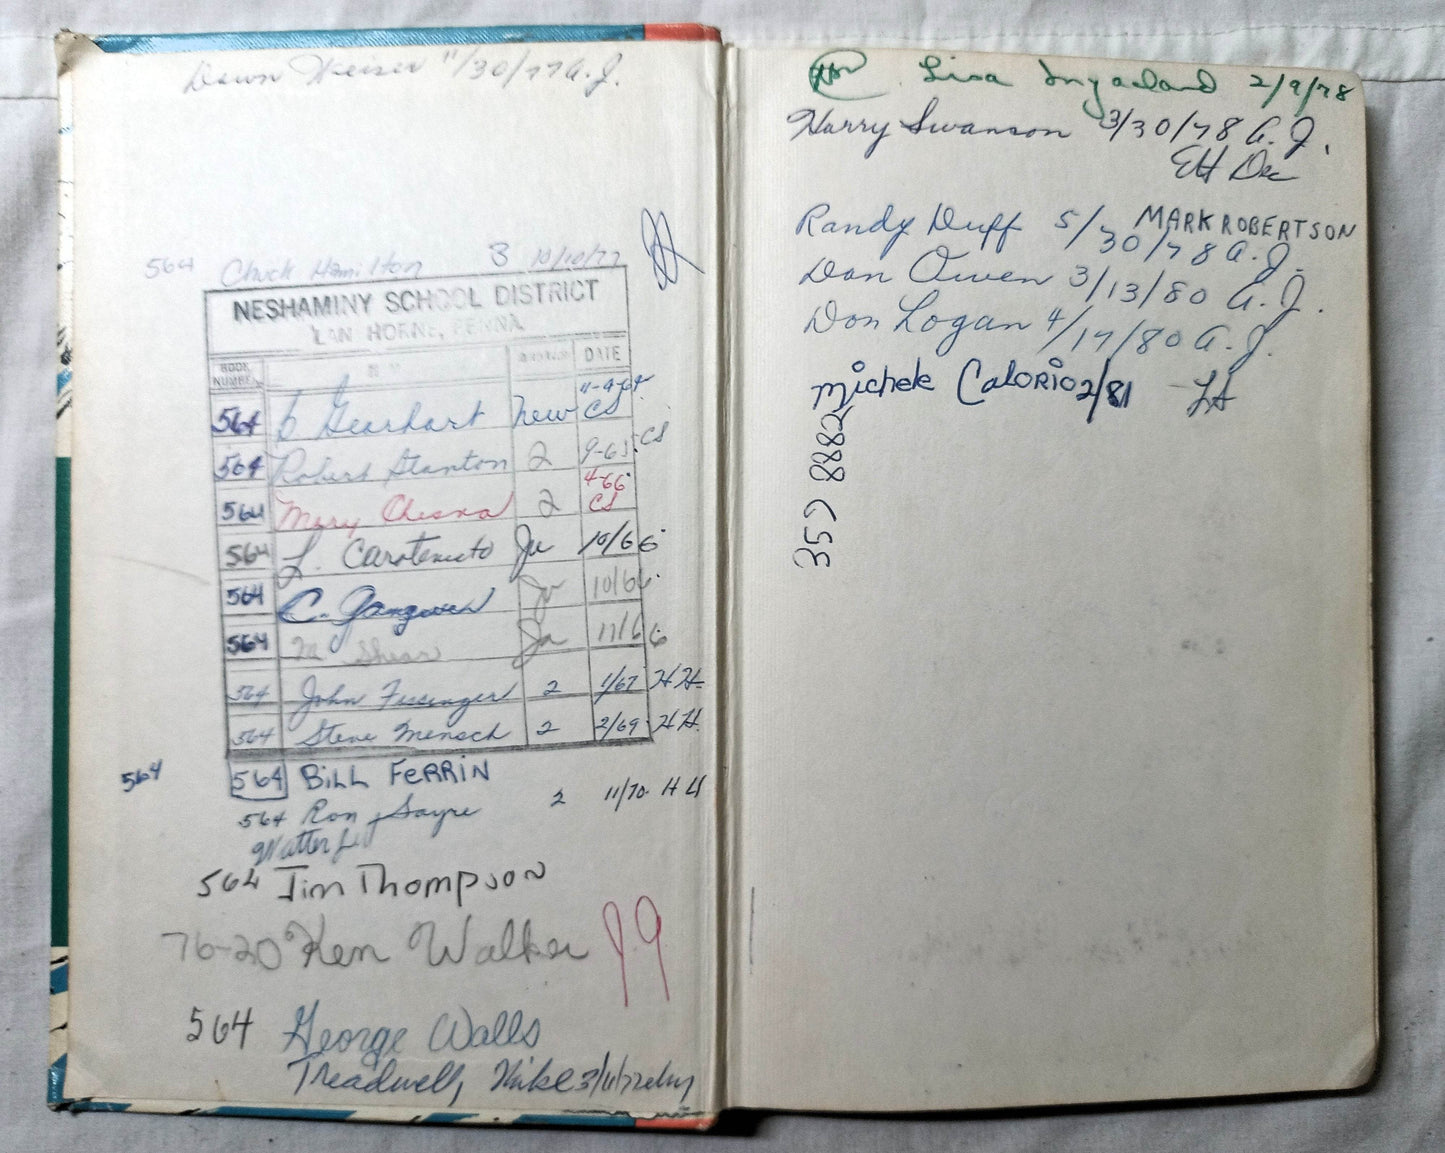 Dawn Weiser 11/30/77 A.J.
564 Chuck Hamilton 3 10/10/77
NESHAMINY SCHOOL DISTRICT
LANGHORNE, PENNA.
BOOK NUMBER DATE
564 B Gearhart new 11-9-64 CS
564 Robert Stanton 2 9-65 CS
564 Mary Chesna 2 4-66 CS
564 L. Carotenuto Ju 10/66
564 C. Ju 10/66
564 M Shear Ju 11/66
564 John 2 1/67 HH
564 Steve Mensch 2 2/69 HH
564 564 BILL FERRIN
564 Ron Sayre 2 11/70 HH
564 Jim Thompson
76-20 Ken Walker J.J
564 George Walls
Treadwell, Mike
Lisa 2/9/78
Harry Swanson 3/30/78 A.J.
EH Dec
MARK ROBERTSON
Randy Duff 5/30/78 A.J.
Dan Owen 3/13/80 A.J.
Don Logan 4/17/80 A.J.
michele Calorio 2/81 -LH
357 8882